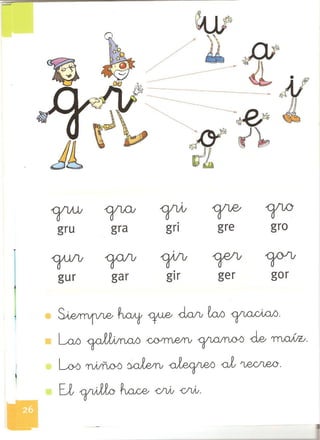 u
a
i
g r
e
o
gru gra gri gre gro
gru gra gri gre gro
gur gar gir ger gor
gur gar gir ger gor
Siempre hay que dar las gracias.
Las gallinas comen granos de maíz.
Los niños salen alegres al recreo.
El grillo hace cri cri.
26